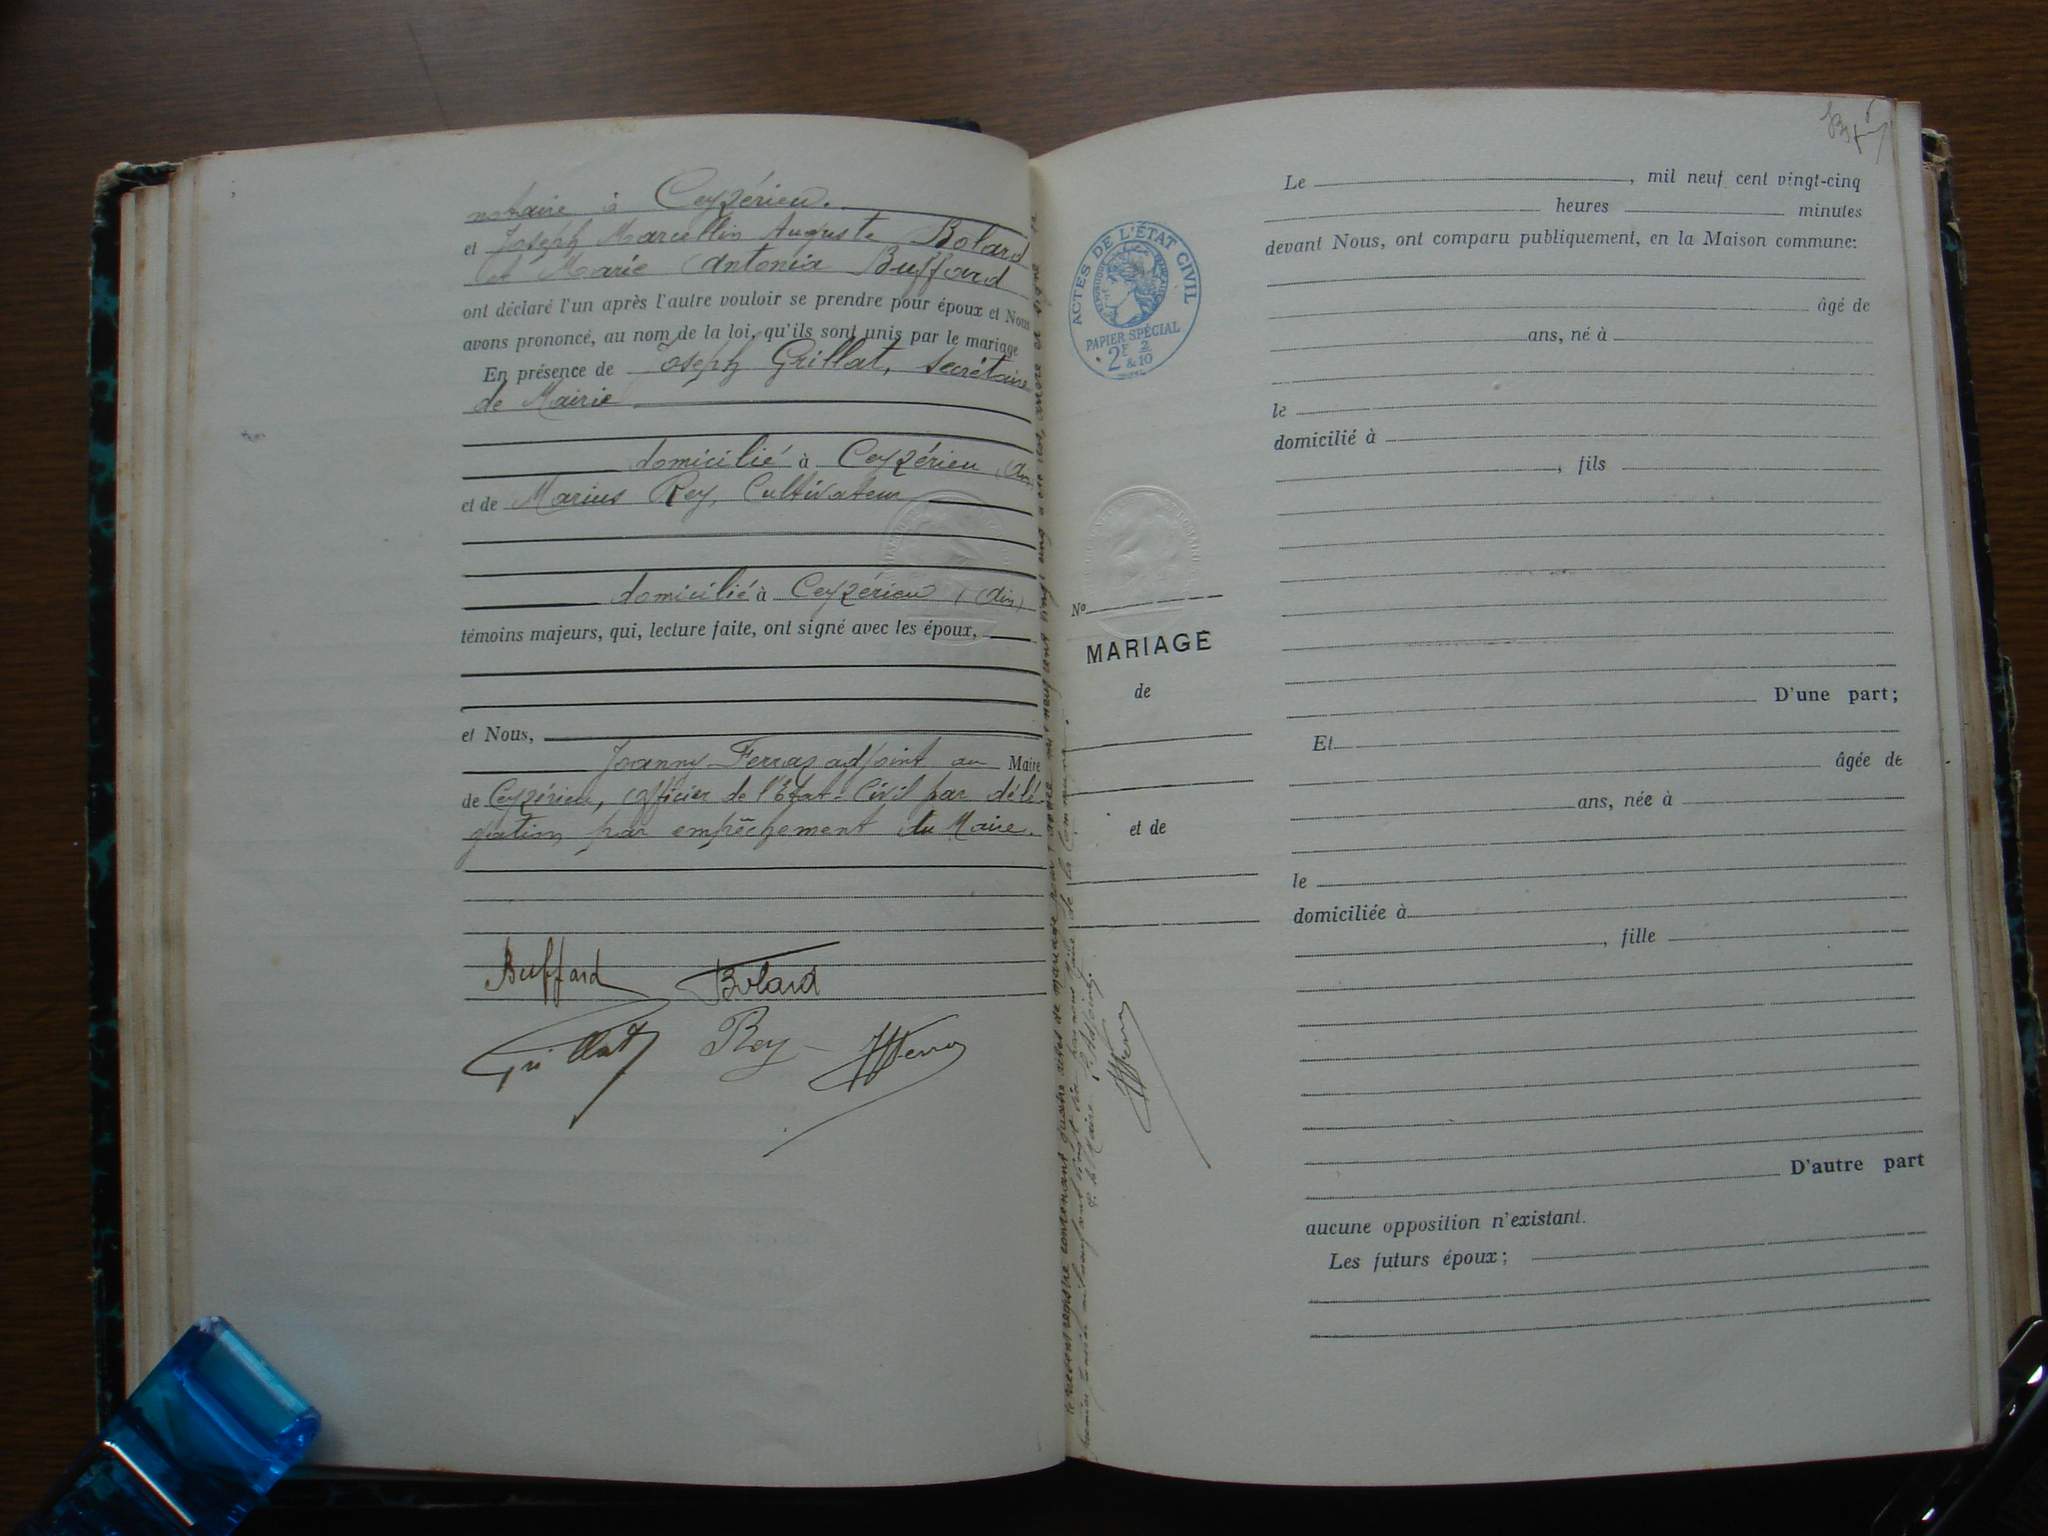 notaire à Ceyzérieu.
et Joseph Marcellin Auguste Bolard
et Marie Antonia Buffard
ont déclaré l'un après l'autre vouloir se prendre pour époux et Nous
avons prononcé, au nom de la loi, qu'ils sont unis par le mariage
En présence de Joseph Grillat, secrétaire
de Mairie
domicilié à Ceyzérieu (Ain)
et de Marius Rey, Cultivateur
domicilié à Ceyzérieu (Ain)
témoins majeurs, qui, lecture faite, ont signé avec les époux,
et Nous,
Joanny Ferraz adjoint au Maire
de Ceyzérieu, officier de l'Etat-Civil par délé
gation par empêchement du Maire.
Buffard Bolard
Grillat Rey
Le présent registre contenant quatre actes de mariage pour l'année mil neuf cent vingt cinq a été clos, arrêté et signé le
premier janvier mil neuf cent vingt six par nous Maire de la Commune.
P. le Maire, l'Adjoint,
ACTES DE L'ÉTAT CIVIL
PAPIER SPÉCIAL
2F & 2/10
No
MARIAGE
de
et de
Le , mil neuf cent vingt-cinq
heures minutes
devant Nous, ont comparu publiquement, en la Maison commune:
âgé de
ans, né à
le
domicilié à
, fils
D'une part;
Et
âgée de
ans, née à
le
domiciliée à
, fille
D'autre part
aucune opposition n'existant.
Les futurs époux;